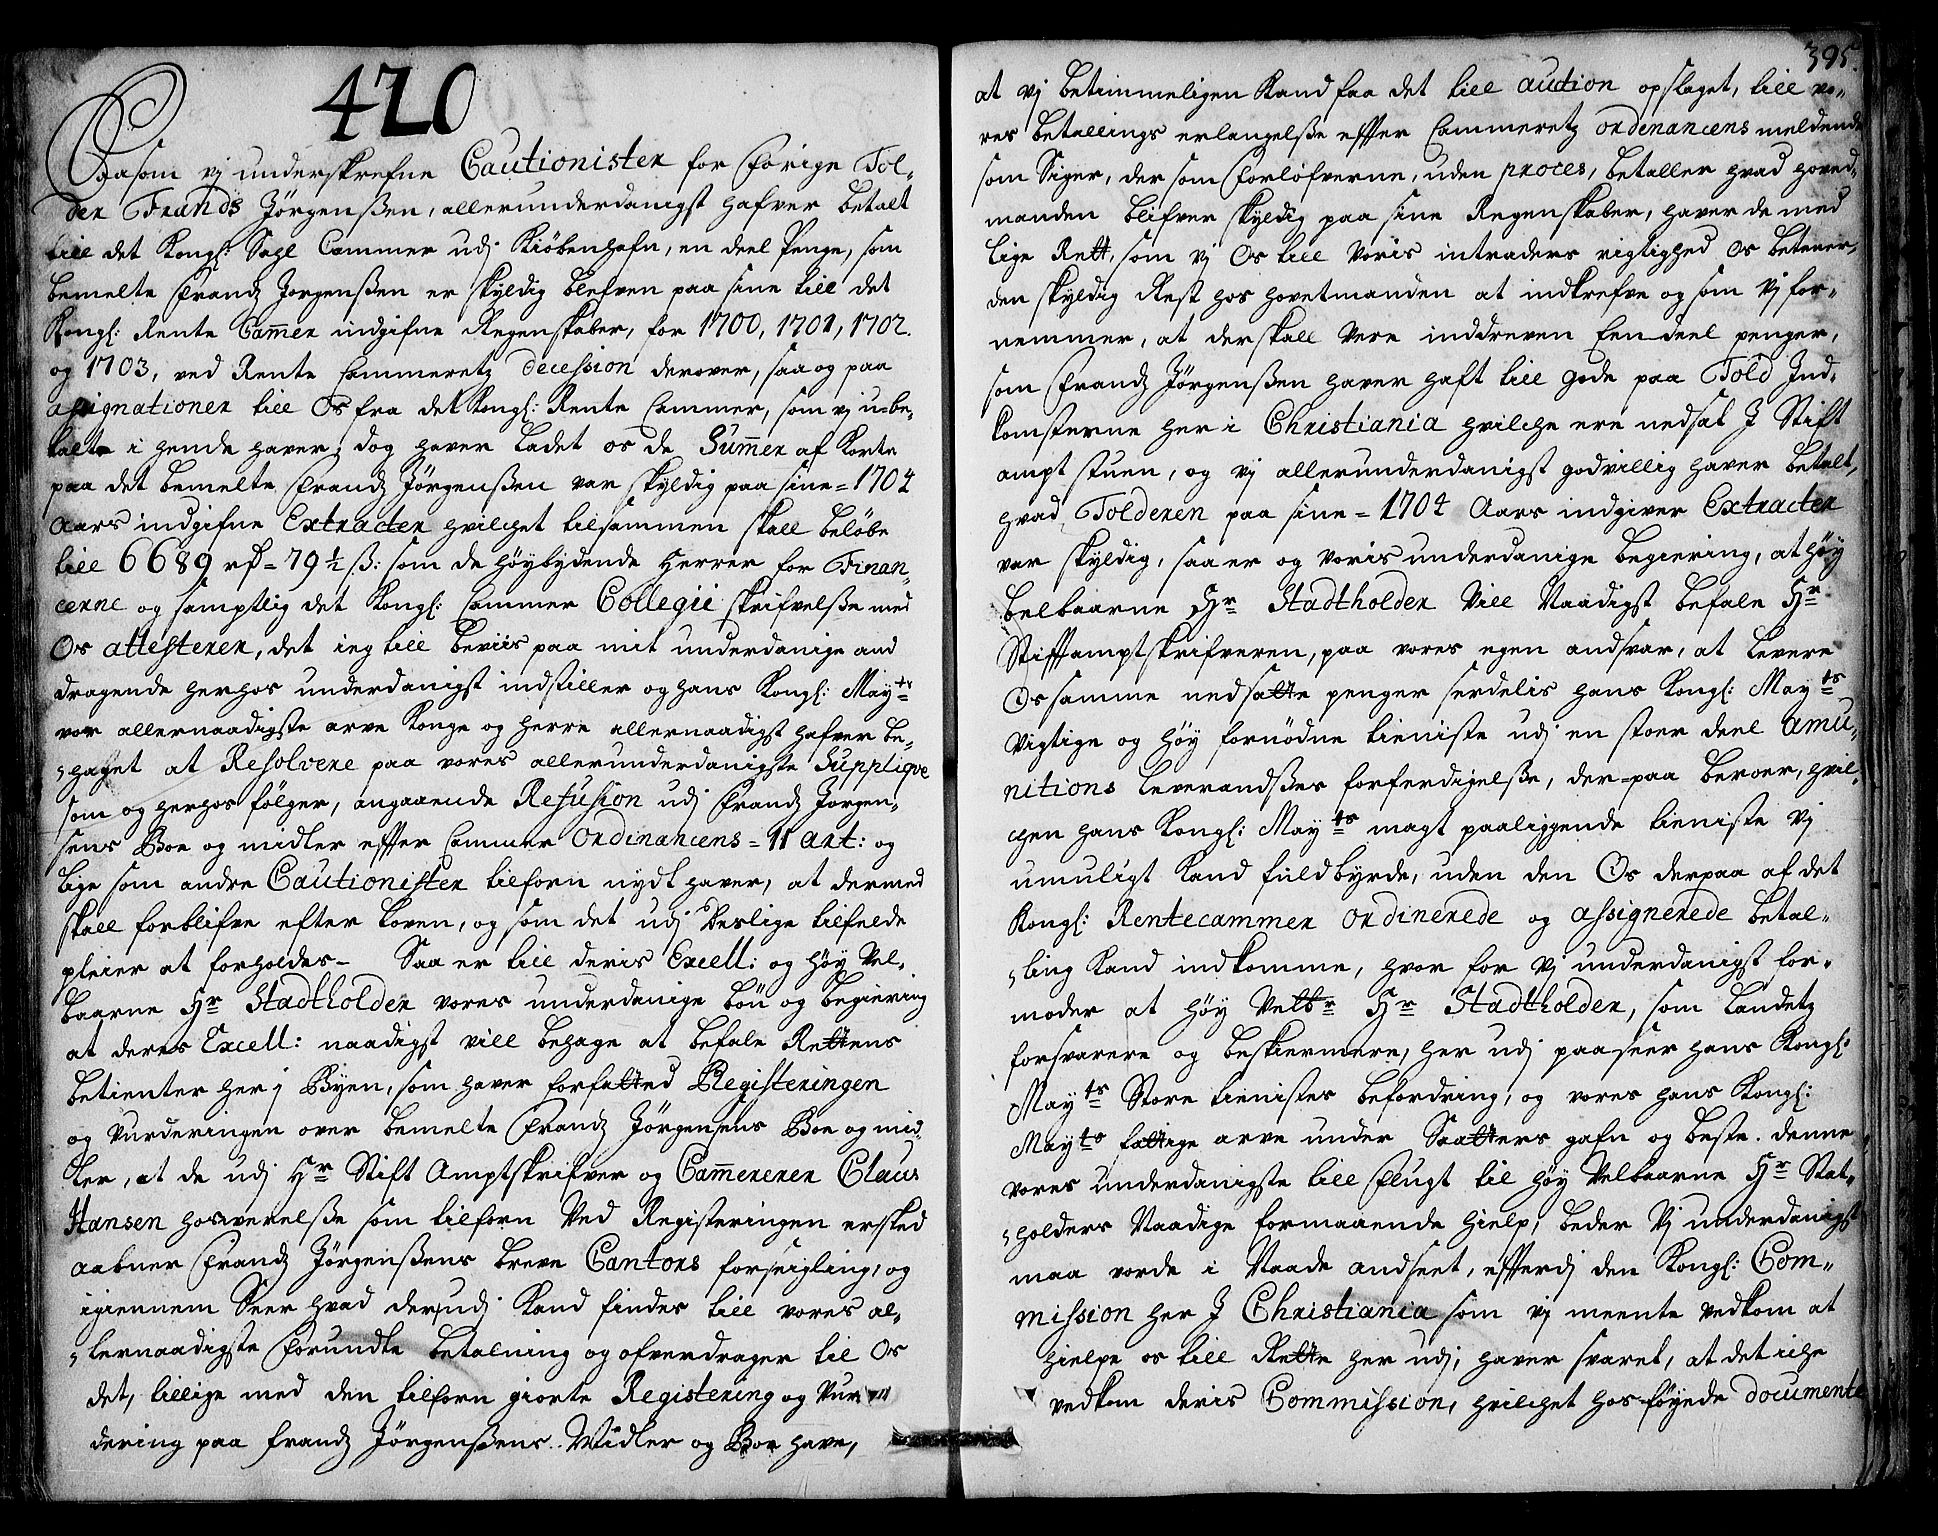 420
Saasom vj underskrefne Cautionister for forige Tol-
der Frands Jörgensßen, allerunderdanigst hafver betalt
till det Kongl: Sahl Cammer udj Kiöbenhafn, en deel Penge, som
bemelte Frandz Jorgenßen er skyldig blefven paa sine till det
Kongl: Rente Cam̅er indgifne Regenskaber, for 1700, 1701, 1702.
og 1703, ved Rente Cammeretz decession derover, saa og paa
assignationer till Os fra det Kongl: Rente Cammer, som vj u-be-
talte i hende haver; dog haver ladet os de Sum̅er af korte
paa det bemelte Frandz Jörgenßen var skyldig paa sine = 1704
Aars indgifne Extracter hvilchet tilsammen skall belöbe
till 6689 rd = 79½ ß: som de höybydende Herrer for Finan-
cerne og samptlig det Kongl: Cammer Collegii skrifvelße med
Os attesterer, det ieg till beviis paa mit underdanige and
dragende herhos underdanigst indstiller og hans Kongl: Mayts
vor allernaadigste arve Konge og Herre allernaadigst hafver be-
haget at Resolvere paa vores allerunderdanigste Supplique
som og herhos fölger, angaaende Refusion udj Frandz Jorgen-
sens Boe og midler effter Cammer Ordinancens = 11 art: og
lige som andre Cautionister tilforn nydt haver, at dermed
skall forblifve efter loven, og som det udj deslige tilfelde
pleier at forholdes - Saa er till deris Excell: og Höy Vel-
baarne Hr Stadtholder vores underdanige bön og begiering
at deres Excell: naadigst vill behage at befale Rettens
betienter her j Byen, som haver forfatted Registeringen
og Vurderingen over bemelte Frandz Jörgensens Boe og mid-
ler, at de udj Hr Stift Amptskrifver og Cam̅ererer Claus
Hansen hosverelße som tilforn Ved Registeringen ersked
aabner Frandz Jörgenßens breve Cantors forseigling, og
igiennem Seer hvad derudj Kand findes till vores al-
lernaadigste forundte betalning og ofverdrager til Os
det, tillige med den tilforn giorte Registering og Vur
dering paa Frandz Jörgenßens Midler og Boe have,
395.
at vj betimmeligen Kand faa det till auction opslaget, till vo-
res betallings erlangelße effter Cammeretz ordenancens meldende
som Siger, der som forlofverne, uden proces, betaller hvad hoved-
manden blifver skyldig paa sine Regenskaber, haver de med
lige Rett, som vj Os till Voris intraders rigtighed Os betener,
den skyldig Rest hos hovetmanden at indkrefve og som Vj for-
nemmer, at der skall Vere inddreven Een deel penger,
som Frandz Jörgenßen haver haft till gode paa Told Ind-
komsterne her i Christiania hvilche ere nedsat J Stift
ampt stuen, og vj allerunderdanigst godvillig haver betalt,
hvad Tolderen paa sine = 1704 Aars indgiver Extracter
var skyldig, saa er og Voris underdanige begiering, at Höy
Velbaarne Hr Stadtholder Vill Naadigst befale Hr
Stifftamptskrifveren, paa vores egen andsvar, at Levere
Os samme nedsatte penger serdelis hans Kongl: Mayts
Vigtige og höy fornödne tieniste udj en stoer deel Amu-
nitions Leverandßes forferdigelße, der-paa beroer, hvil-
chen hans Kongl: Mayts magt paaliggende tieniste Vj
umuligt Kand fuldbyrde, uden den Os derpaa af det
Kongl: Rentecammer Ordinerede og assignerede betal-
ling Kand indkomme, hvor for Vj underdanigst for-
moder at Höy Velbr Hr Stadtholder, som Landetz
forsvarere og beskiermere, her udj paaseer hans Kongl:
Mayts Store tienistes befordring, og vores hans Kongl:
Mayts fattige arve under Saatters gafn og beste. denne
vores underdanigste till flugt til Höy Velbaarne Hr Stat-
holders Naadige formaaende hielp, beder Vj underdanigst
maa vorde i Naade andseet, effterdj den Kongl: Com-
mission her J Christiania som vj meente vedkom at
hielpe os till Rette her udj, haver svaret, at det iche
vedkom deris Commission, hvilchet hos-föyede documente